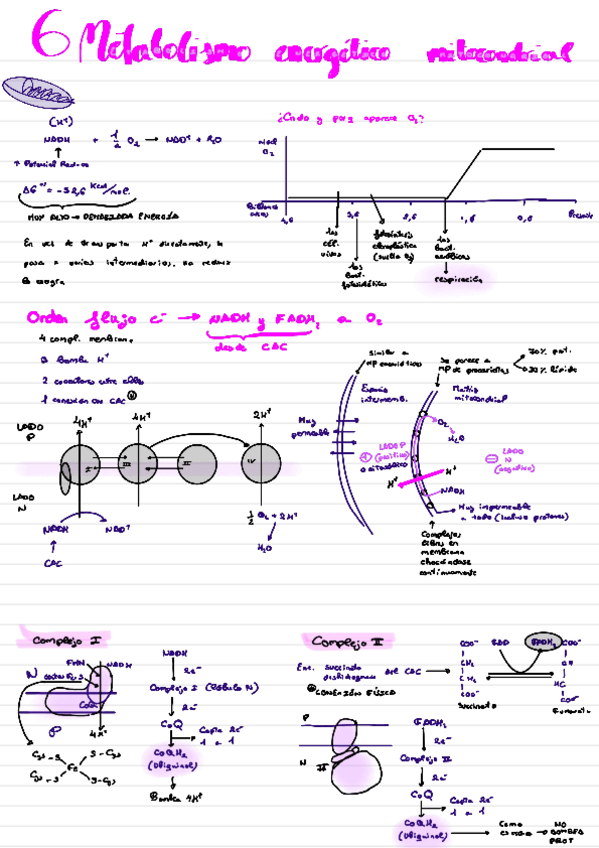 6 Metabolismo energético mitocondrial
(H⁺)
NADH + ½ O₂ → NAD⁺ + H₂O
↑ Potencial Redox
ΔG°' = -52,6 Kcal/mol.
MUY ALTO → DEMASIADA ENERGÍA
En vez de transportar H⁺ directamente, lo
pasa a varios intermediarios,
la energía
¿Cuándo y por q aparece O₂?
Nivel
O₂
Billones
años
4,6
3,6
2,6
1,6
0,6
Presente
1as
cél.
vivas
1as
Bact.
fotosintéticas
fotosíntesis
(suelta O₂)
1as
Bact.
aeróbicas
respiración
Orden flujo e⁻ → NADH y FADH₂ a O₂
desde CAC
4 compl. membrana
3 Bomba H⁺
2 conectores entre ellos
1 conexión con CAC
LADO
P
4H⁺
4H⁺
2H⁺
I
III
II
IV
LADO
N
NADH
NAD⁺
CAC
½ O₂ + 2H⁺
H₂O
Similar a
MP eucariótica
Se parece a
MP de procariotas
70% prot.
30% lípido
Espacio
intermemb.
Matriz
mitocondrial
Muy
permeable
LADO P
(positivo)
o citosólico
O₂
H₂O
LADO
N
(negativo)
H⁺
H⁺
NADH
Muy impermeable
a todo (incluso protones)
Complejos
libres en
membrana
chocándose
continuamente
Complejo I
N
FMN
NADH
CoQ
P
4H⁺
Cys - S
S - Cys
Fe
Cys - S
S - Cys
NADH
2e⁻
Complejo I (Lóbulo N)
2e⁻
CoQ
Capta 2e⁻
1 a 1
CoQH₂
(Ubiquinol)
Bomba 4H⁺
Complejo II
Enz. succinato
deshidrogenasa
del CAC
CONEXIÓN FÍSICA
COO⁻
CH₂
CH₂
COO⁻
Succinato
FAD
FADH₂
COO⁻
CH
HC
COO⁻
Fumarato
P
N
II
FADH₂
2e⁻
Complejo II
2e⁻
CoQ
Capta 2e⁻
1 a 1
CoQH₂
(Ubiquinol)
Como
NO
BOMBEA
PROT